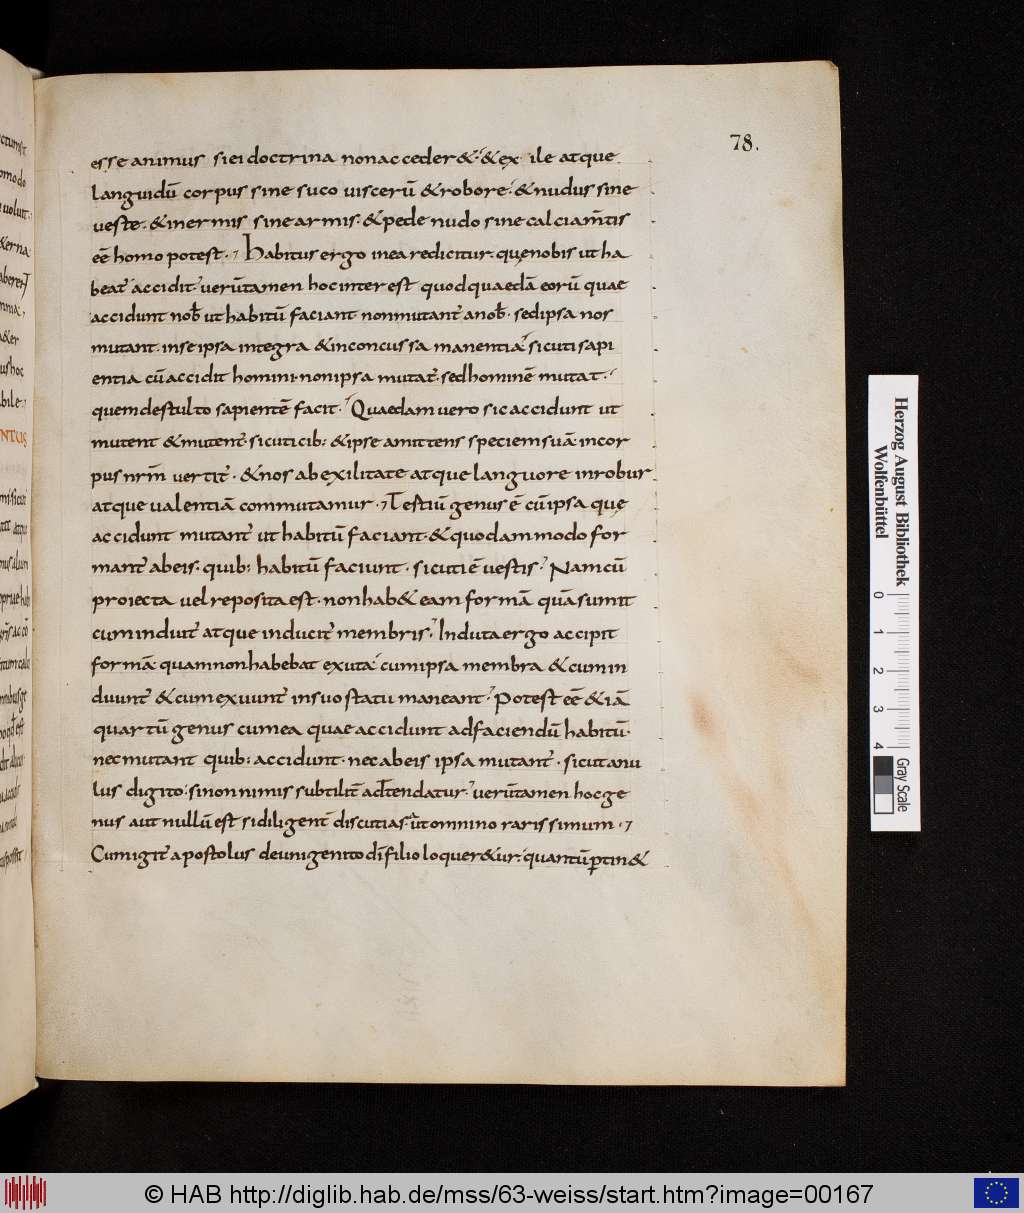 78.
esse animus si ei doctrina non acceder&. & ex ile atque
languidū corpus sine suco uiscerū & robore. & nudus sine
ueste. & inermis sine armis. & pede nudo sine calciam̄tis
eē homo potest. Habitus ergo in ea re dicitur. quę nobis ut ha
beat̄ accidit. uerūtamen hoc interest quod quaedā eorū quae
accidunt nob̄ ut habitū faciant non mutant̄ a nob̄. sed ipsa nos
mutant. in se ipsa integra & inconcussa manentia. sicuti sapi
entia cū accidit homini. non ipsa mutat̄. sed hominē mutat.
quem de stulto sapientē facit. Quaedam uero sic accidunt ut
mutent & mutent̄. sicuti cib: & ipse amittens speciem suā in cor
pus nr̄m uertit̄. & nos ab exilitate atque languore in robur
atque ualentiā commutamur. Testiū genus ē cū ipsa quę
accidunt mutant̄ ut habitū faciant. & quodammodo for
mant̄ ab eis. quib: habitū faciunt. sicuti ē uestis. Nam cū
proiecta uel reposita est. non hab& eam formā quā sumit
cum induit̄ atque inducit̄ membris. Induta ergo accipit
formā quam non habebat exuta. cum ipsa membra & cum in
duunt̄ & cum exuunt̄ in suo statu maneant. Potest eē & iā
quartū genus cum ea quae accidunt ad faciendū habitū.
nec mutant quib: accidunt. nec ab eis ipsa mutant̄. sicut anu
lus digito. si non nimis subtilit̄ adtendatur. uerūtamen hoc ge
nus aut nullū est si diligent̄ discutias. ut omnino rarissimum.
Cum igit̄ apostolus de unigenito dī filio loquer&ur. quantū ptin&
Herzog August Bibliothek
Wolfenbüttel
0 1 2 3 4
Gray Scale
© HAB http://diglib.hab.de/mss/63-weiss/start.htm?image=00167